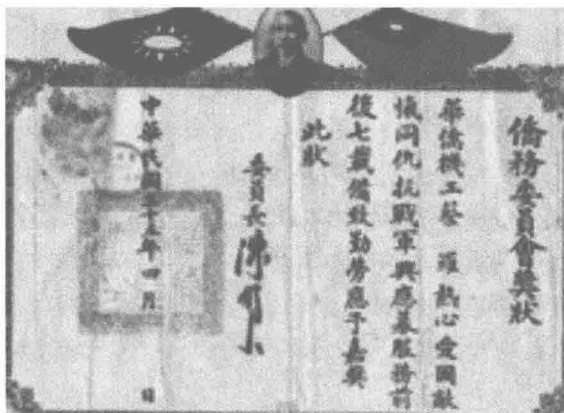 僑務委員會獎狀
華僑機工蔡 羅熱心愛國敵
愾同仇抗戰軍興應募服務前
後七載備致勤勞應予嘉獎
此狀
委員長陳
中華民國三十五年四月 日